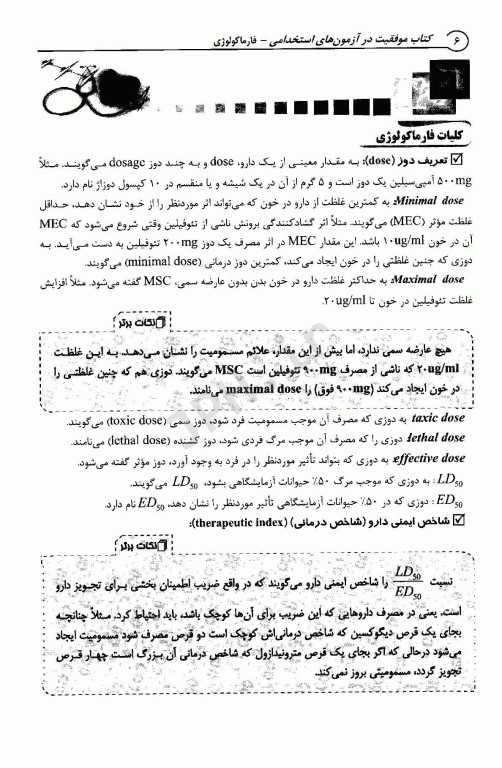 ۶ کتاب موفقیت در آزمون‌های استخدامی – فارماکولوژی
کلیات فارماکولوژی
☑ تعریف دوز (dose): به مقدار معینی از یک دارو، dose و به چند دوز dosage می‌گویند. مثلاً
۵۰۰mg آمپی‌سیلین یک دوز است و ۵ گرم از آن در یک شیشه و یا منقسم در ۱۰ کپسول دوزاژ نام دارد.
Minimal dose: به کمترین غلظت از دارو در خون که می‌تواند اثر موردنظر را از خود نشان دهد، حداقل
غلظت مؤثر (MEC) می‌گویند. مثلاً اثر گشادکنندگی برونش ناشی از تئوفیلین وقتی شروع می‌شود که MEC
آن در خون ۱۰ug/ml باشد. این مقدار MEC در اثر مصرف یک دوز ۲۰۰mg تئوفیلین به دست می‌آید. به
دوزی که چنین غلظتی را در خون ایجاد می‌کند، کمترین دوز درمانی (minimal dose) می‌گویند.
Maximal dose: به حداکثر غلظت دارو در خون بدن بدون عارضه سمی، MSC گفته می‌شود. مثلاً افزایش
غلظت تئوفیلین در خون تا ۲۰ug/ml.
نکات برتر
هیچ عارضه سمی ندارد، اما بیش از این مقدار، علائم مسمومیت را نشان می‌دهد. به این غلظت
۲۰ug/ml که ناشی از مصرف ۹۰۰mg تئوفیلین است MSC می‌گویند. دوزی هم که چنین غلظتی را
در خون ایجاد می‌کند (۹۰۰mg فوق) را maximal dose می‌نامند.
taxic dose به دوزی که مصرف آن موجب مسمومیت فرد شود، دوز سمی (toxic dose) می‌گویند.
lethal dose: دوزی را که مصرف آن موجب مرگ فردی شود، دوز کشنده (lethal dose) می‌نامند.
effective dose: به دوزی که بتواند تأثیر موردنظر را در فرد به وجود آورد، دوز مؤثر گفته می‌شود.
LD50: به دوزی که موجب مرگ ۵۰٪ حیوانات آزمایشگاهی بشود، LD50 می‌گویند.
ED50: دوزی که در ۵۰٪ حیوانات آزمایشگاهی تأثیر موردنظر را نشان دهد، ED50 نام دارد.
☑ شاخص ایمنی دارو (شاخص درمانی) (therapeutic index):
نکات برتر
نسبت LD50/ED50 را شاخص ایمنی دارو می‌گویند که در واقع ضریب اطمینان بخشی برای تجویز دارو
است. یعنی در مصرف داروهایی که این ضریب برای آن‌ها کوچک باشد، باید احتیاط کرد. مثلاً چنانچه
بجای یک قرص دیگوکسین که شاخص درمانی‌اش کوچک است دو قرص مصرف شود مسمومیت ایجاد
می‌شود درحالی که اگر بجای یک قرص مترونیدازول که شاخص درمانی آن بزرگ است چهار قرص
تجویز گردد، مسمومیتی بروز نمی‌کند.